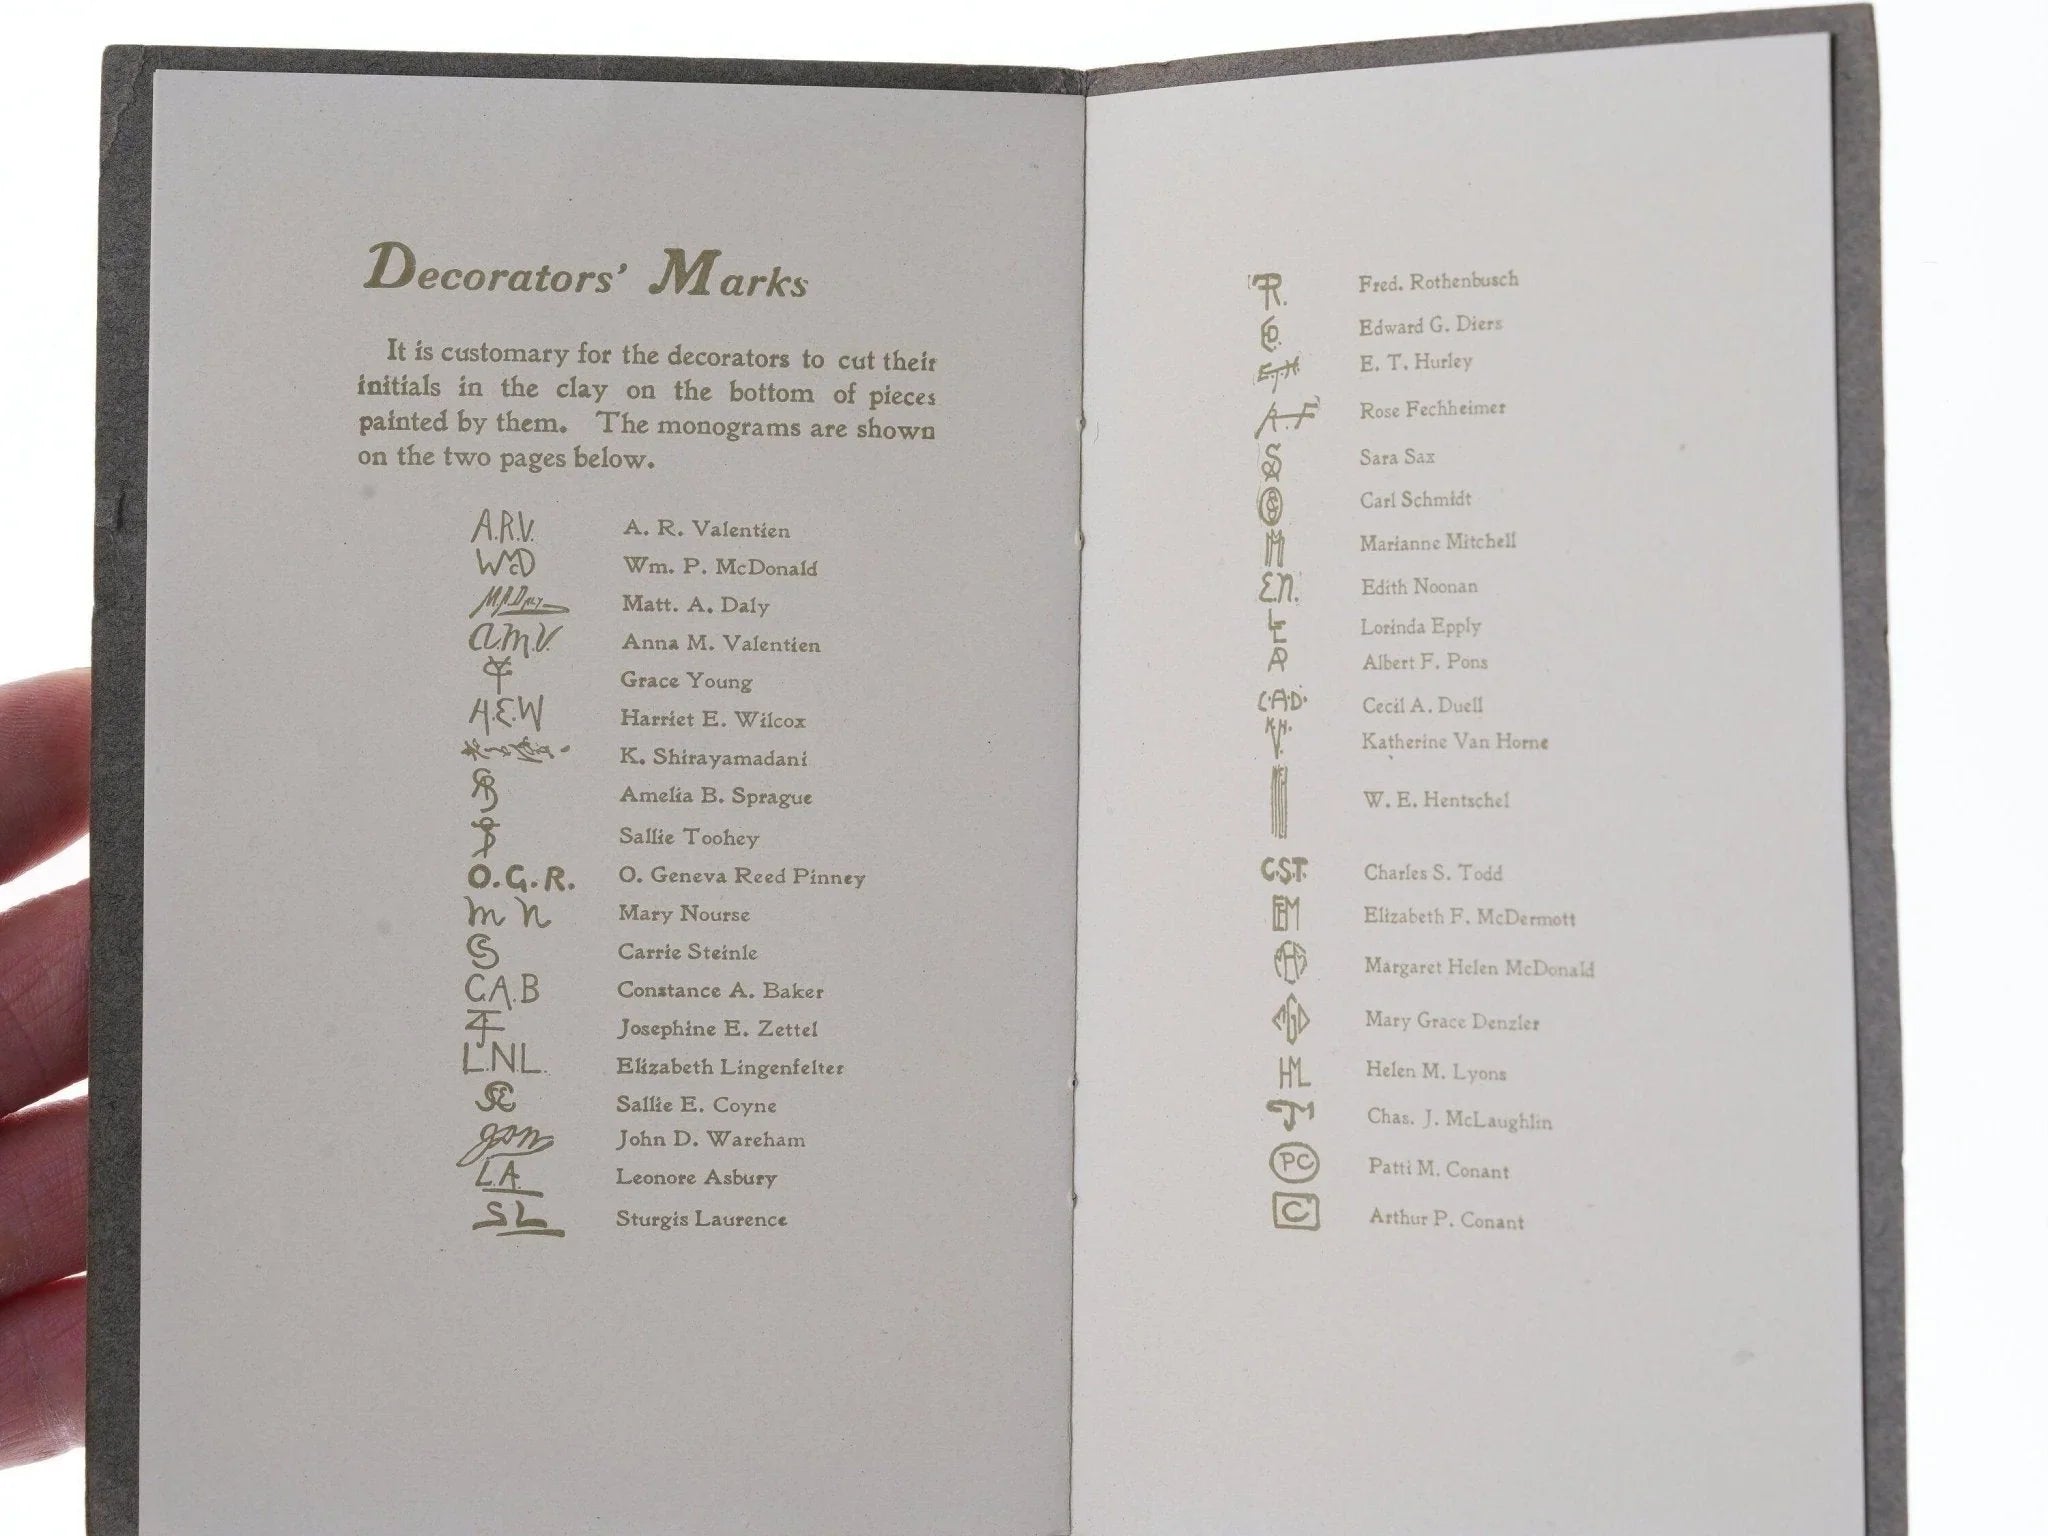 Decorators' Marks
It is customary for the decorators to cut their
initials in the clay on the bottom of pieces
painted by them. The monograms are shown
on the two pages below.
A.R.V. A. R. Valentien
WMcD Wm. P. McDonald
M.A.Daly Matt. A. Daly
A.M.V. Anna M. Valentien
Grace Young
H.E.W Harriet E. Wilcox
K. Shirayamadani
Amelia B. Sprague
Sallie Toohey
O.G.R. O. Geneva Reed Pinney
M N Mary Nourse
Carrie Steinle
C.A.B Constance A. Baker
Josephine E. Zettel
L.N.L. Elizabeth Lingenfelter
Sallie E. Coyne
John D. Wareham
L.A. Leonore Asbury
SL Sturgis Laurence
Fred. Rothenbusch
Edward G. Diers
E.T.H. E. T. Hurley
R.F. Rose Fechheimer
Sara Sax
Carl Schmidt
Marianne Mitchell
E.N. Edith Noonan
LE Lorinda Epply
Albert F. Pons
C.A.D. Cecil A. Duell
K.H.V. Katherine Van Horne
W. E. Hentschel
C.S.T. Charles S. Todd
Elizabeth F. McDermott
Margaret Helen McDonald
MGD Mary Grace Denzler
HML Helen M. Lyons
Chas. J. McLaughlin
PC Patti M. Conant
C Arthur P. Conant